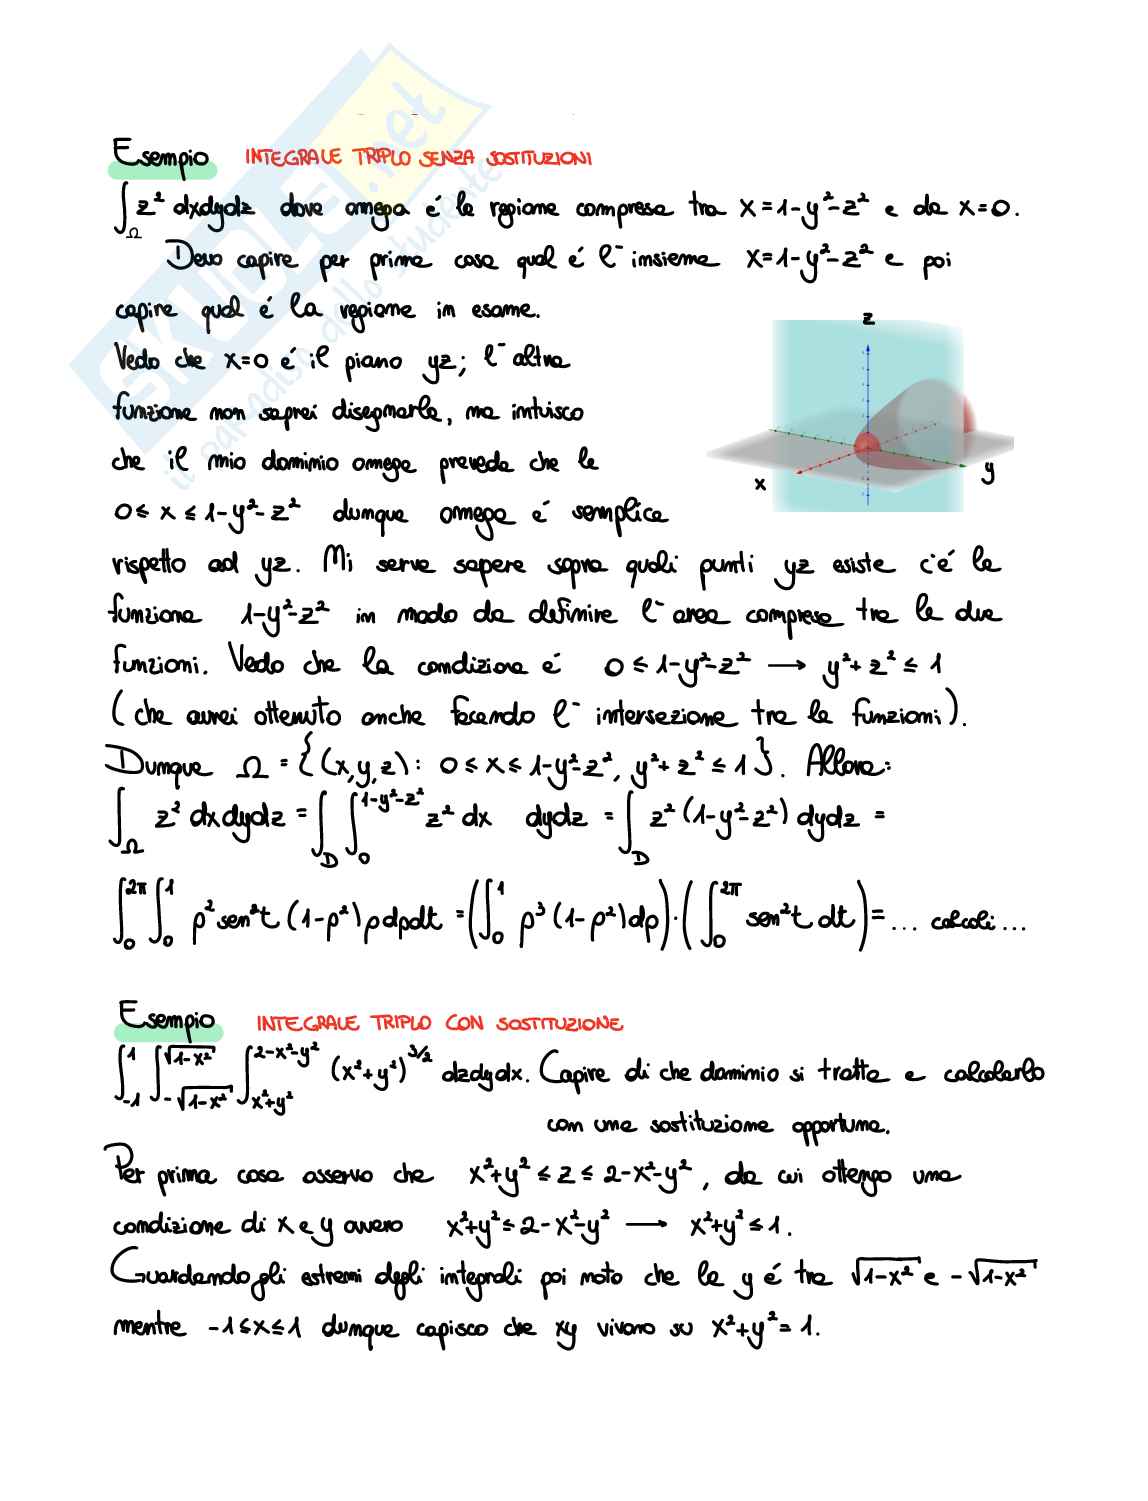 Esempio INTEGRALE TRIPLO SENZA SOSTITUZIONI
∫_Ω z² dxdydz dove omega é la regione compresa tra x=1-y²-z² e da x=0.
Devo capire per prima cosa qual é l'insieme x=1-y²-z² e poi
capire qual é la regione in esame.
Vedo che x=0 é il piano yz; l'altra
funzione non saprei disegnarla, ma intuisco
che il mio dominio omega preveda che la
0≤ x ≤ 1-y²-z² dunque omega é semplice
z
x
y
rispetto ad yz. Mi serve sapere sopra quali punti yz esiste c'é la
funziona 1-y²-z² in modo da definire l'area compresa tra le due
funzioni. Vedo che la condizione é 0 ≤ 1-y²-z² → y²+z² ≤ 1
(che avrei ottenuto anche facendo l'intersezione tra le funzioni).
Dunque Ω = {(x,y,z): 0 ≤ x ≤ 1-y²-z², y²+z² ≤ 1}. Allora:
∫_Ω z² dxdydz = ∫_D ∫_0^{1-y²-z²} z² dx dydz = ∫_D z² (1-y²-z²) dydz =
∫_0^{2π} ∫_0^1 ρ² sen²t (1-ρ²) ρ dρdt = (∫_0^1 ρ³ (1-ρ²)dρ)·(∫_0^{2π} sen²t dt) = ... calcoli...
Esempio INTEGRALE TRIPLO CON SOSTITUZIONE
∫_{-1}^1 ∫_{-√1-x²}^{√1-x²} ∫_{x²+y²}^{2-x²-y²} (x²+y²)^{3/2} dzdydx. Capire di che dominio si tratta e calcolarlo
con una sostituzione opportuna.
Per prima cosa osservo che x²+y² ≤ z ≤ 2-x²-y², da cui ottengo una
condizione di x e y ovvero x²+y² ≤ 2-x²-y² → x²+y² ≤ 1.
Guardando gli estremi degli integrali poi noto che la y é tra √1-x² e -√1-x²
mentre -1≤x≤1 dunque capisco che xy vivono su x²+y²=1.
SKUOLA.net
il paradiso dello studente